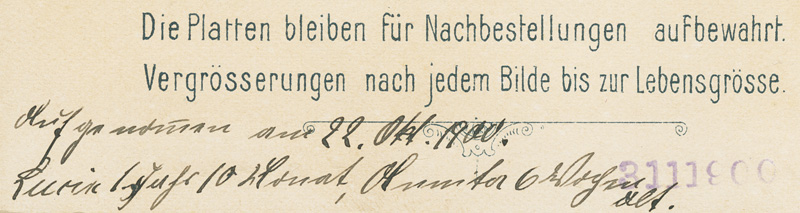 Die Platten bleiben für Nachbestellungen aufbewahrt.
Vergrösserungen nach jedem Bilde bis zur Lebensgrösse.
Aufgenom̅en am 22. Okt. 1900.
Lucie 1 Jahr 10 Monat, Annita 6 Wochen alt.
3111900